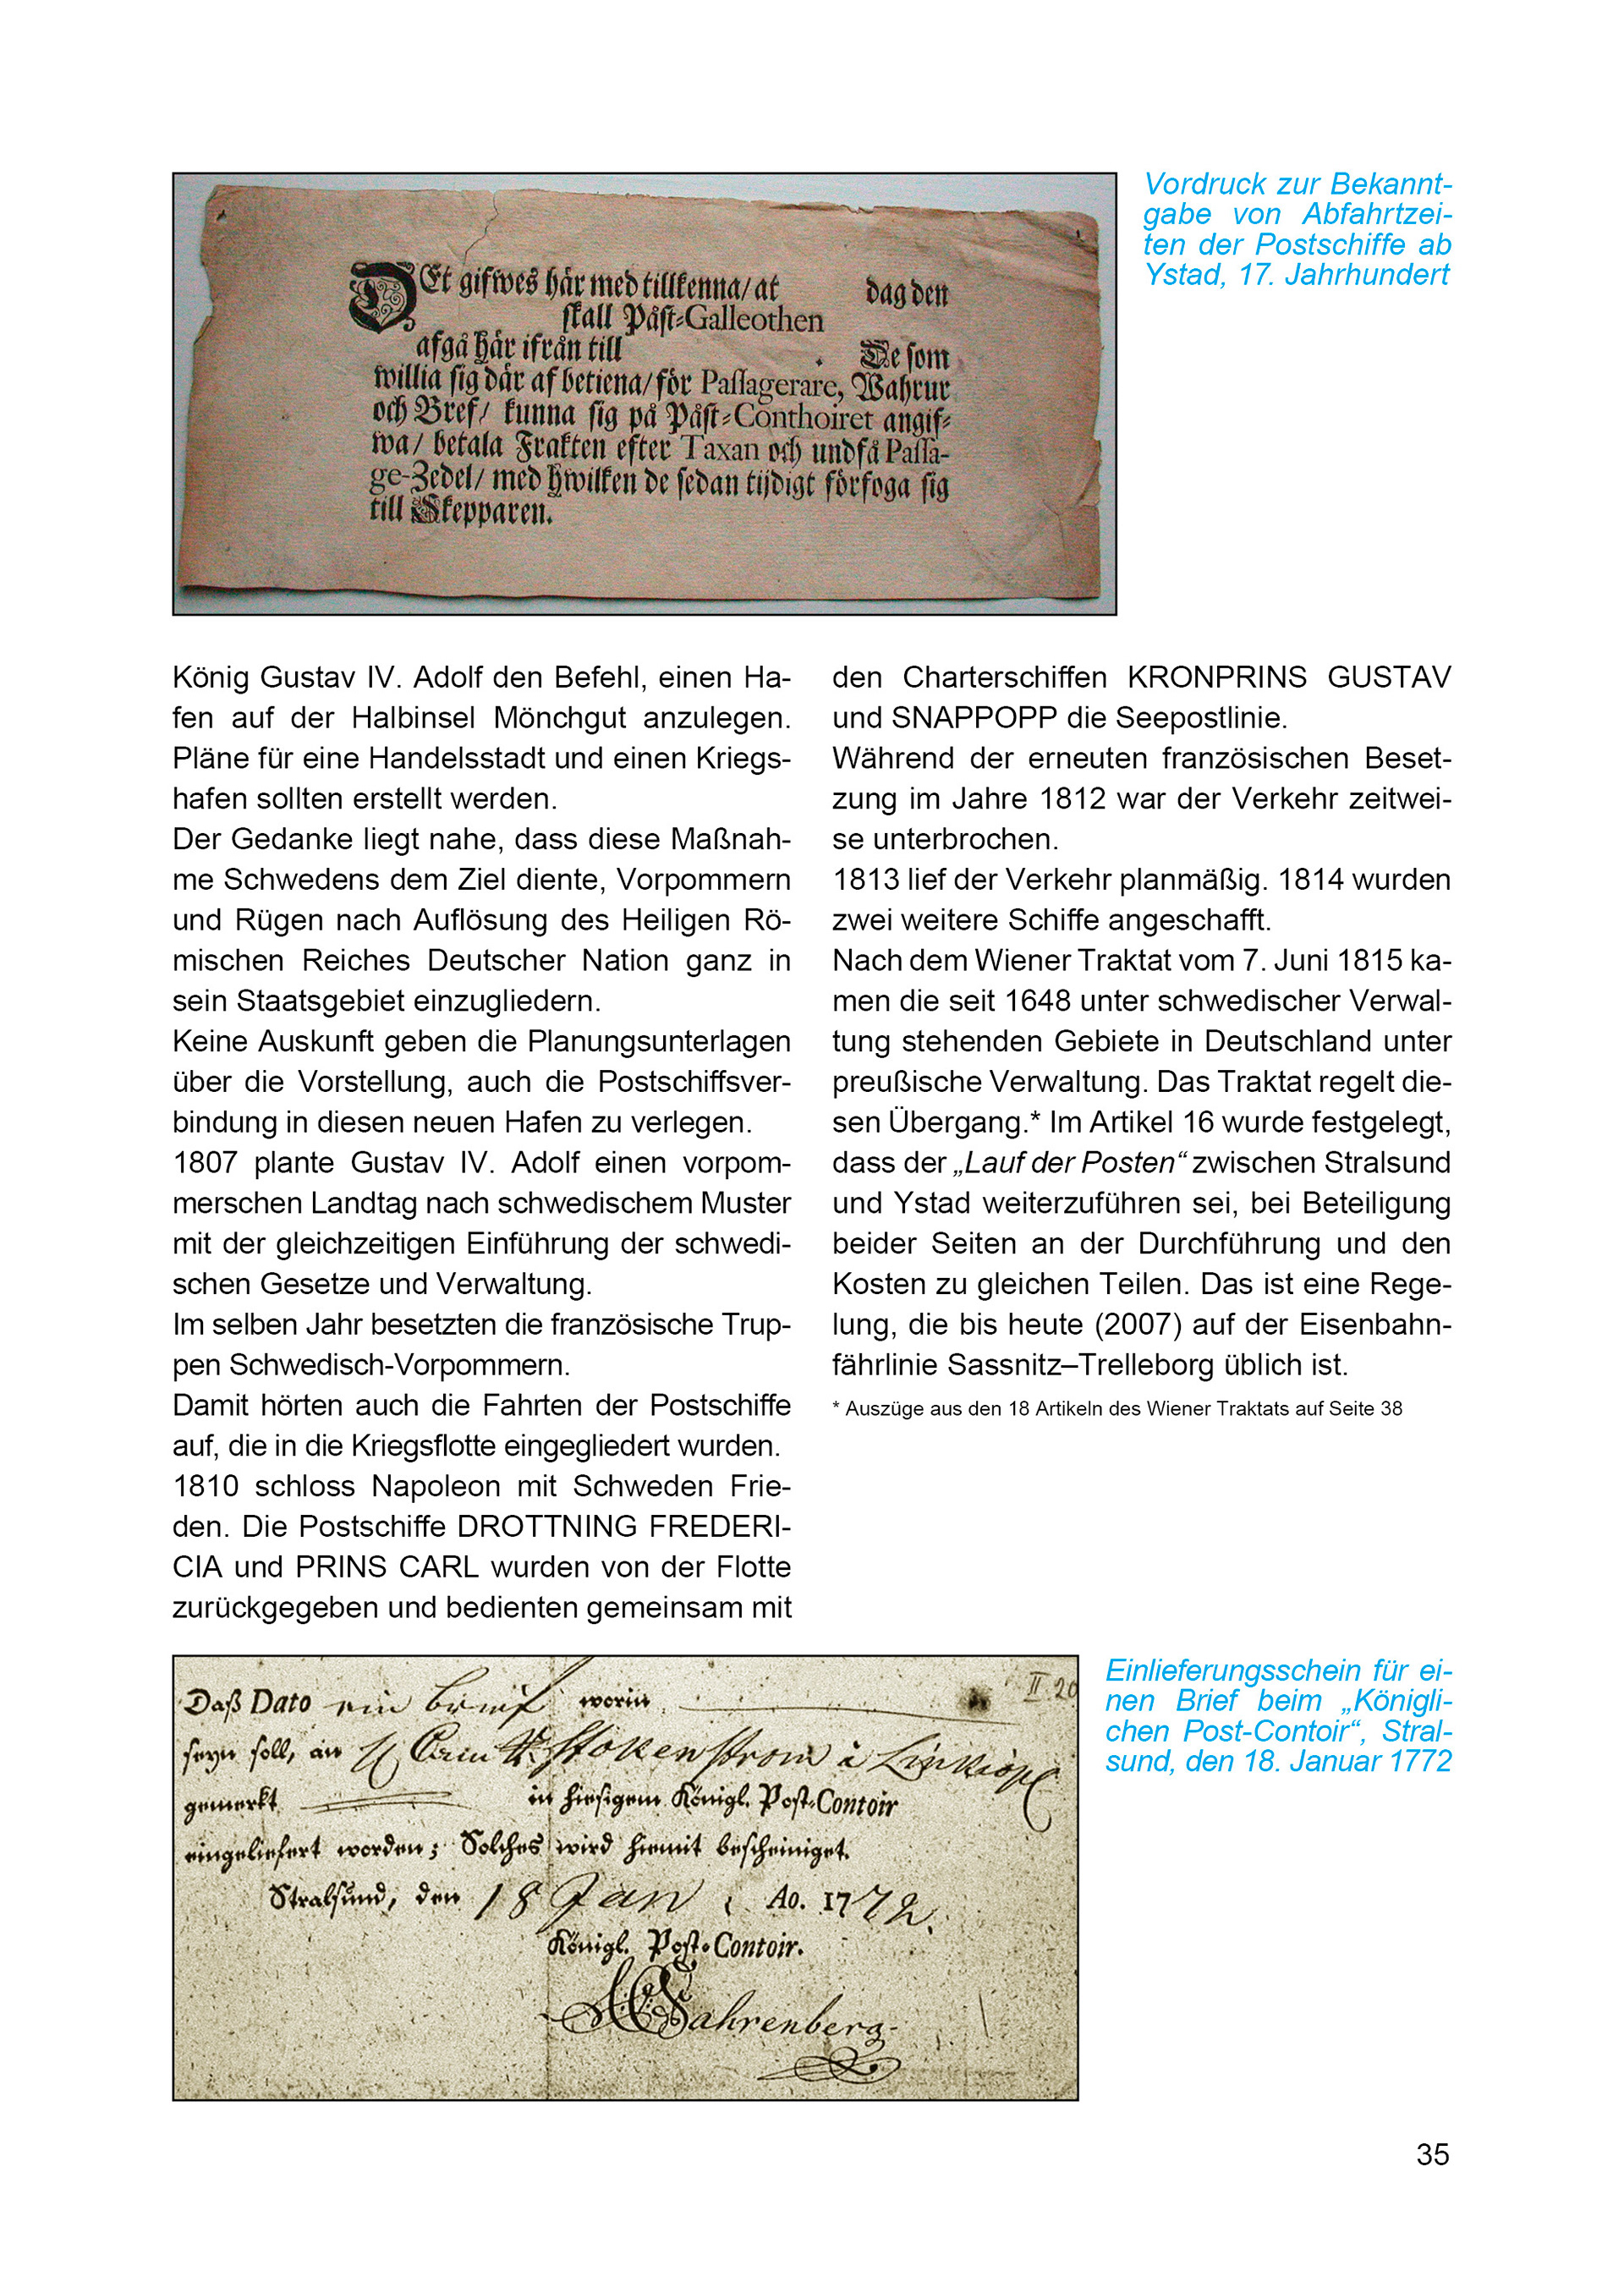 DEt gifwes här med tillkenna/ at dag den
skall Påst=Galleothen
afgå här ifrån till . De som
willia sig där af betiena/ för Passagerare, Wahrur
och Bref/ kunna sig på Påst=Conthoiret angif=
wa/ betala Frakten efter Taxan och undfå Passa-
ge-Zedel/ med hwilken de sedan tijdigt förfoga sig
till Skepparen.
Vordruck zur Bekannt-
gabe von Abfahrtzei-
ten der Postschiffe ab
Ystad, 17. Jahrhundert
König Gustav IV. Adolf den Befehl, einen Ha-
fen auf der Halbinsel Mönchgut anzulegen.
Pläne für eine Handelsstadt und einen Kriegs-
hafen sollten erstellt werden.
Der Gedanke liegt nahe, dass diese Maßnah-
me Schwedens dem Ziel diente, Vorpommern
und Rügen nach Auflösung des Heiligen Rö-
mischen Reiches Deutscher Nation ganz in
sein Staatsgebiet einzugliedern.
Keine Auskunft geben die Planungsunterlagen
über die Vorstellung, auch die Postschiffsver-
bindung in diesen neuen Hafen zu verlegen.
1807 plante Gustav IV. Adolf einen vorpom-
merschen Landtag nach schwedischem Muster
mit der gleichzeitigen Einführung der schwedi-
schen Gesetze und Verwaltung.
Im selben Jahr besetzten die französische Trup-
pen Schwedisch-Vorpommern.
Damit hörten auch die Fahrten der Postschiffe
auf, die in die Kriegsflotte eingegliedert wurden.
1810 schloss Napoleon mit Schweden Frie-
den. Die Postschiffe DROTTNING FREDERI-
CIA und PRINS CARL wurden von der Flotte
zurückgegeben und bedienten gemeinsam mit
den Charterschiffen KRONPRINS GUSTAV
und SNAPPOPP die Seepostlinie.
Während der erneuten französischen Beset-
zung im Jahre 1812 war der Verkehr zeitwei-
se unterbrochen.
1813 lief der Verkehr planmäßig. 1814 wurden
zwei weitere Schiffe angeschafft.
Nach dem Wiener Traktat vom 7. Juni 1815 ka-
men die seit 1648 unter schwedischer Verwal-
tung stehenden Gebiete in Deutschland unter
preußische Verwaltung. Das Traktat regelt die-
sen Übergang.* Im Artikel 16 wurde festgelegt,
dass der „Lauf der Posten“ zwischen Stralsund
und Ystad weiterzuführen sei, bei Beteiligung
beider Seiten an der Durchführung und den
Kosten zu gleichen Teilen. Das ist eine Rege-
lung, die bis heute (2007) auf der Eisenbahn-
fährlinie Sassnitz–Trelleborg üblich ist.
* Auszüge aus den 18 Artikeln des Wiener Traktats auf Seite 38
II 20
Daß Dato ein brief worin
seyn soll, an Stokenstrom à Linkiöp
gemerkt in hiesigem Königl. Post-Contoir
eingeliefert worden; Solches wird hiemit bescheiniget.
Stralsund, den 18 Jan Ao. 1772.
Königl. Post-Contoir.
Fahrenberg
Einlieferungsschein für ei-
nen Brief beim „Königli-
chen Post-Contoir“, Stral-
sund, den 18. Januar 1772
35